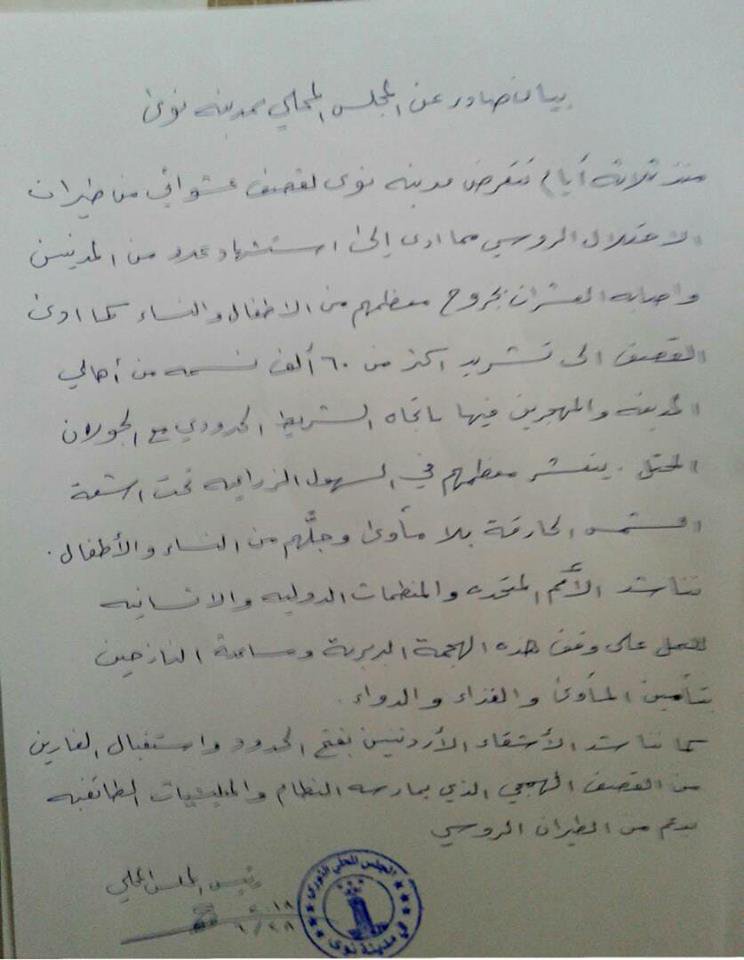 بيان صادر عن المجلس المحلي بمدينة نوى
منذ ثلاثة أيام تتعرض مدينة نوى لقصف عشوائي من طيران
الاحتلال الروسي مما ادى إلى استشهاد عدد من المدنيين
واصابه العشرات بجروح معظمهم من الاطفال والنساء كما ادى
القصف الى تشريد اكثر من ٦٠ ألف نسمه من أهالي
المدينه والمهجرين فيها باتجاه الشريط الحدودي مع الجولان
المحتل . ينتشر معظمهم في السهول الزراعيه تحت اشعة
الشمس الحارقة بلا مأوى وجلَّهم من النساء والأطفال .
نناشد الأمم المتحده والمنظمات الدوليه والانسانيه
للعمل على وقف هذه الهجمة البربرية ومساعدة النازحين
بتأمين المأوى والغذاء والدواء .
كما نناشد الأشقاء الأردنيين بفتح الحدود واستقبال الفارين
من القصف الهمجي الذي يمارسه النظام والمليشيات الطائفيه
بدعم من الطيران الروسي
رئيس المجلس المحلي
٢٠١٨
٦/٢٨
المجلس المحلي الثوري
في مدينة نوى